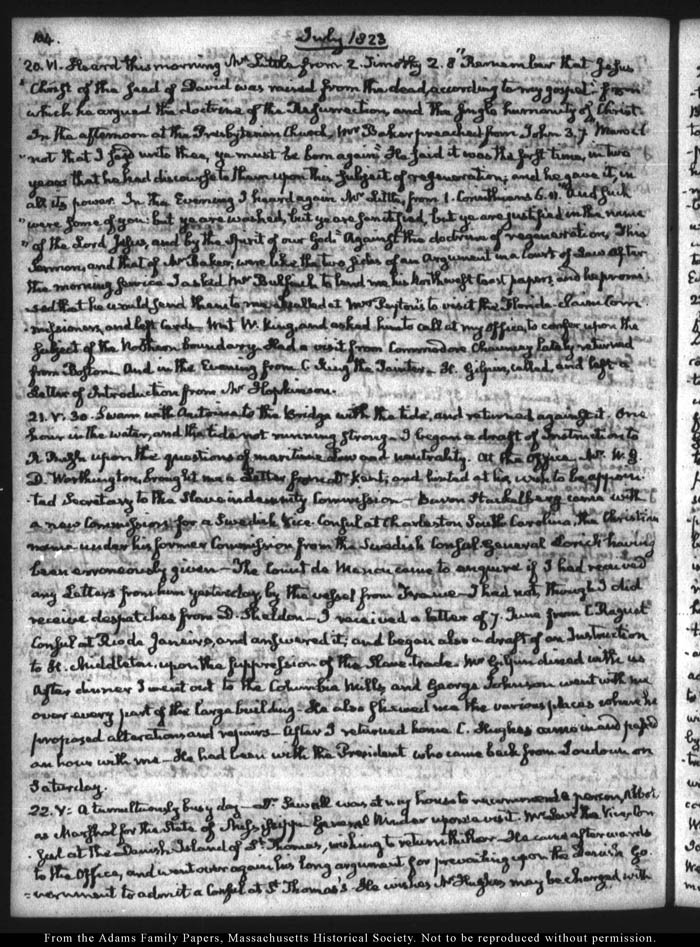 104. July 1823
20. VI. Heard this morning Mr Little from 2. Timothy 2. 8 "Remember that Jesus
"Christ of the seed of David was raised from the dead, according to my gospel": from
which he argued the doctrine of the Resurrection, and the single humanity of Christ.
In the afternoon at the Presbyterian Church, Mr Baker preached from John 3. 7. Marvel
"not that I said unto thee, ye must be born again" He said it was the first time, in two
years that he had discoursed to them upon this subject of regeneration; and he gave it, in
all its power. In the Evening I heard again Mr Little, from 1. Corinthians 6. 11. "And such
"were some of you: but ye are washed, but ye are sanctified, but ye are justified in the name
"of the Lord Jesus, and by the Spirit of our God." Against the doctrine of regeneration. This
Sermon, and that of Mr Baker, were like the two sides of an Argument in a Court of Law. After
the morning service I asked Mr Bulfinch to lend me his Northwest Coast papers, and he promi-
sed that he would send them to me. I called at Mrs Peyton's to visit the Florida claim Com-
missioners, and left Cards. Met W. King, and asked him to call at my Office, to confer upon the
subject of the Northern boundary. Had a visit from Commodore Chauncey lately returned
from Boston. And in the Evening from C. King the Painter. H. Gilpin, called, and left a
Letter of Introduction from Mr Hopkinson.
21. V. 30. Swam with Antoine to the Bridge with the tide, and returned against it. One
hour in the water, and the tide not running strong. I began a draft of Instruction to
R. Rush upon the questions of maritime Law and neutrality. At the Office. Mr. W. G.
D. Worthington, brought me a Letter from Dr Kent; and hinted at his wish to be appoin-
ted Secretary to the Slave indemnity Commission — Baron Stackelberg came with
a new Commission, for a Swedish Vice-Consul at Charleston South Carolina, the Christian
name under his former Commission from the Swedish Consul General Lorich having
been erroneously given — The Count de Menou came to enquire if I had received
any Letters from him yesterday, by the vessel from France — I had not, though I did
receive despatches from D. Sheldon — I received a letter of 7. June from C. Raguet
Consul at Rio de Janeiro, and answered it; and began also a draft of an Instruction
to H. Middleton, upon the suppression of the Slave-trade. Mr Gilpin dined with us
After dinner I went out to the Columbia Mills, and George Johnson went with me
over every part of the large building. He also shewed me the various places where he
proposed alterations and repairs — After I returned home C. Hughes came in and pass'd
an hour with me — He had been with the President who came back from Loudoun on
Saturday.
22. V: A tumultuously busy day — Dr. Sewall was at my house to recommend a person, Abbot
as Marshal for the State of Mississippi. General Winder upon a visit. Mr the Vice Con-
sul at the Danish Island of St. Thomas, wishing to return thither. He came afterwards
to the Office, and went over again his long argument for prevailing upon the Danish Go-
vernment to admit a Consul at St Thomas's. He wishes Mr Hughes may be charged, with
From the Adams Family Papers, Massachusetts Historical Society. Not to be reproduced without permission.